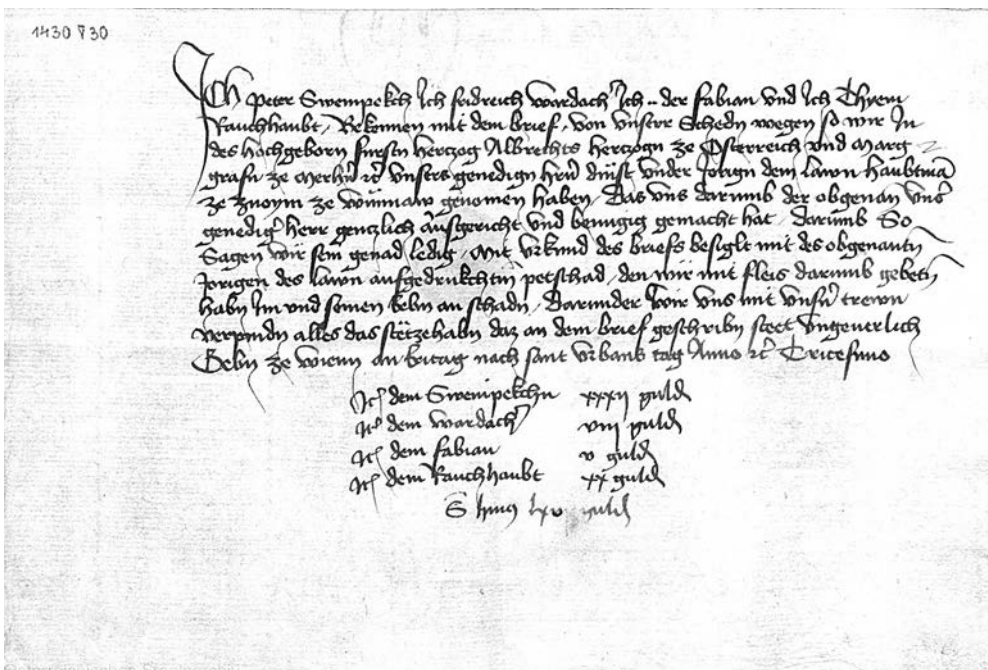 1430 V 30
Ich Peter Swempekch Ich fridreich wardach' Ich .. der fabian vnd Ich Thyem
Rauchhaubt, Bekennen mit dem brief, von vnserr Schedn wegen so wir In
des hochgeborn fürstn hertzog Albrechts hertzogn ze Österreich vnd Marg
grafn ze Merhn' etc vnsers genedign hrn' dinst vnder Jorign dem lawn haubtmā
ze znoym ze genomen haben, Das vns darumb der obgenan vns'
genedig' herr gentzlich ausgericht vnd benugig gemacht hat, darumb So
Sagen wir sein genad ledig, Mit vrkund des briefs besiglt mit des obgenantn
Jorigen des lawn aufgedrukchtm petschad, den wir mit fleis darumb gebetn
habn Im vnd seinen erbn an schadn, Darunder wir vns mit vnsn' trewn
verpindn alles das stet zehabn daz an dem brief geschribn steet vngeuerlich
Gebn ze wienn an britag nach sant vrbans tag Anno etc Tricesimo
It' dem Swempekchn xxxii guld
It' dem wardach' viii guld
It' dem fabian v guld
It' dem Rauchhaubt xx guld
S lxv guld